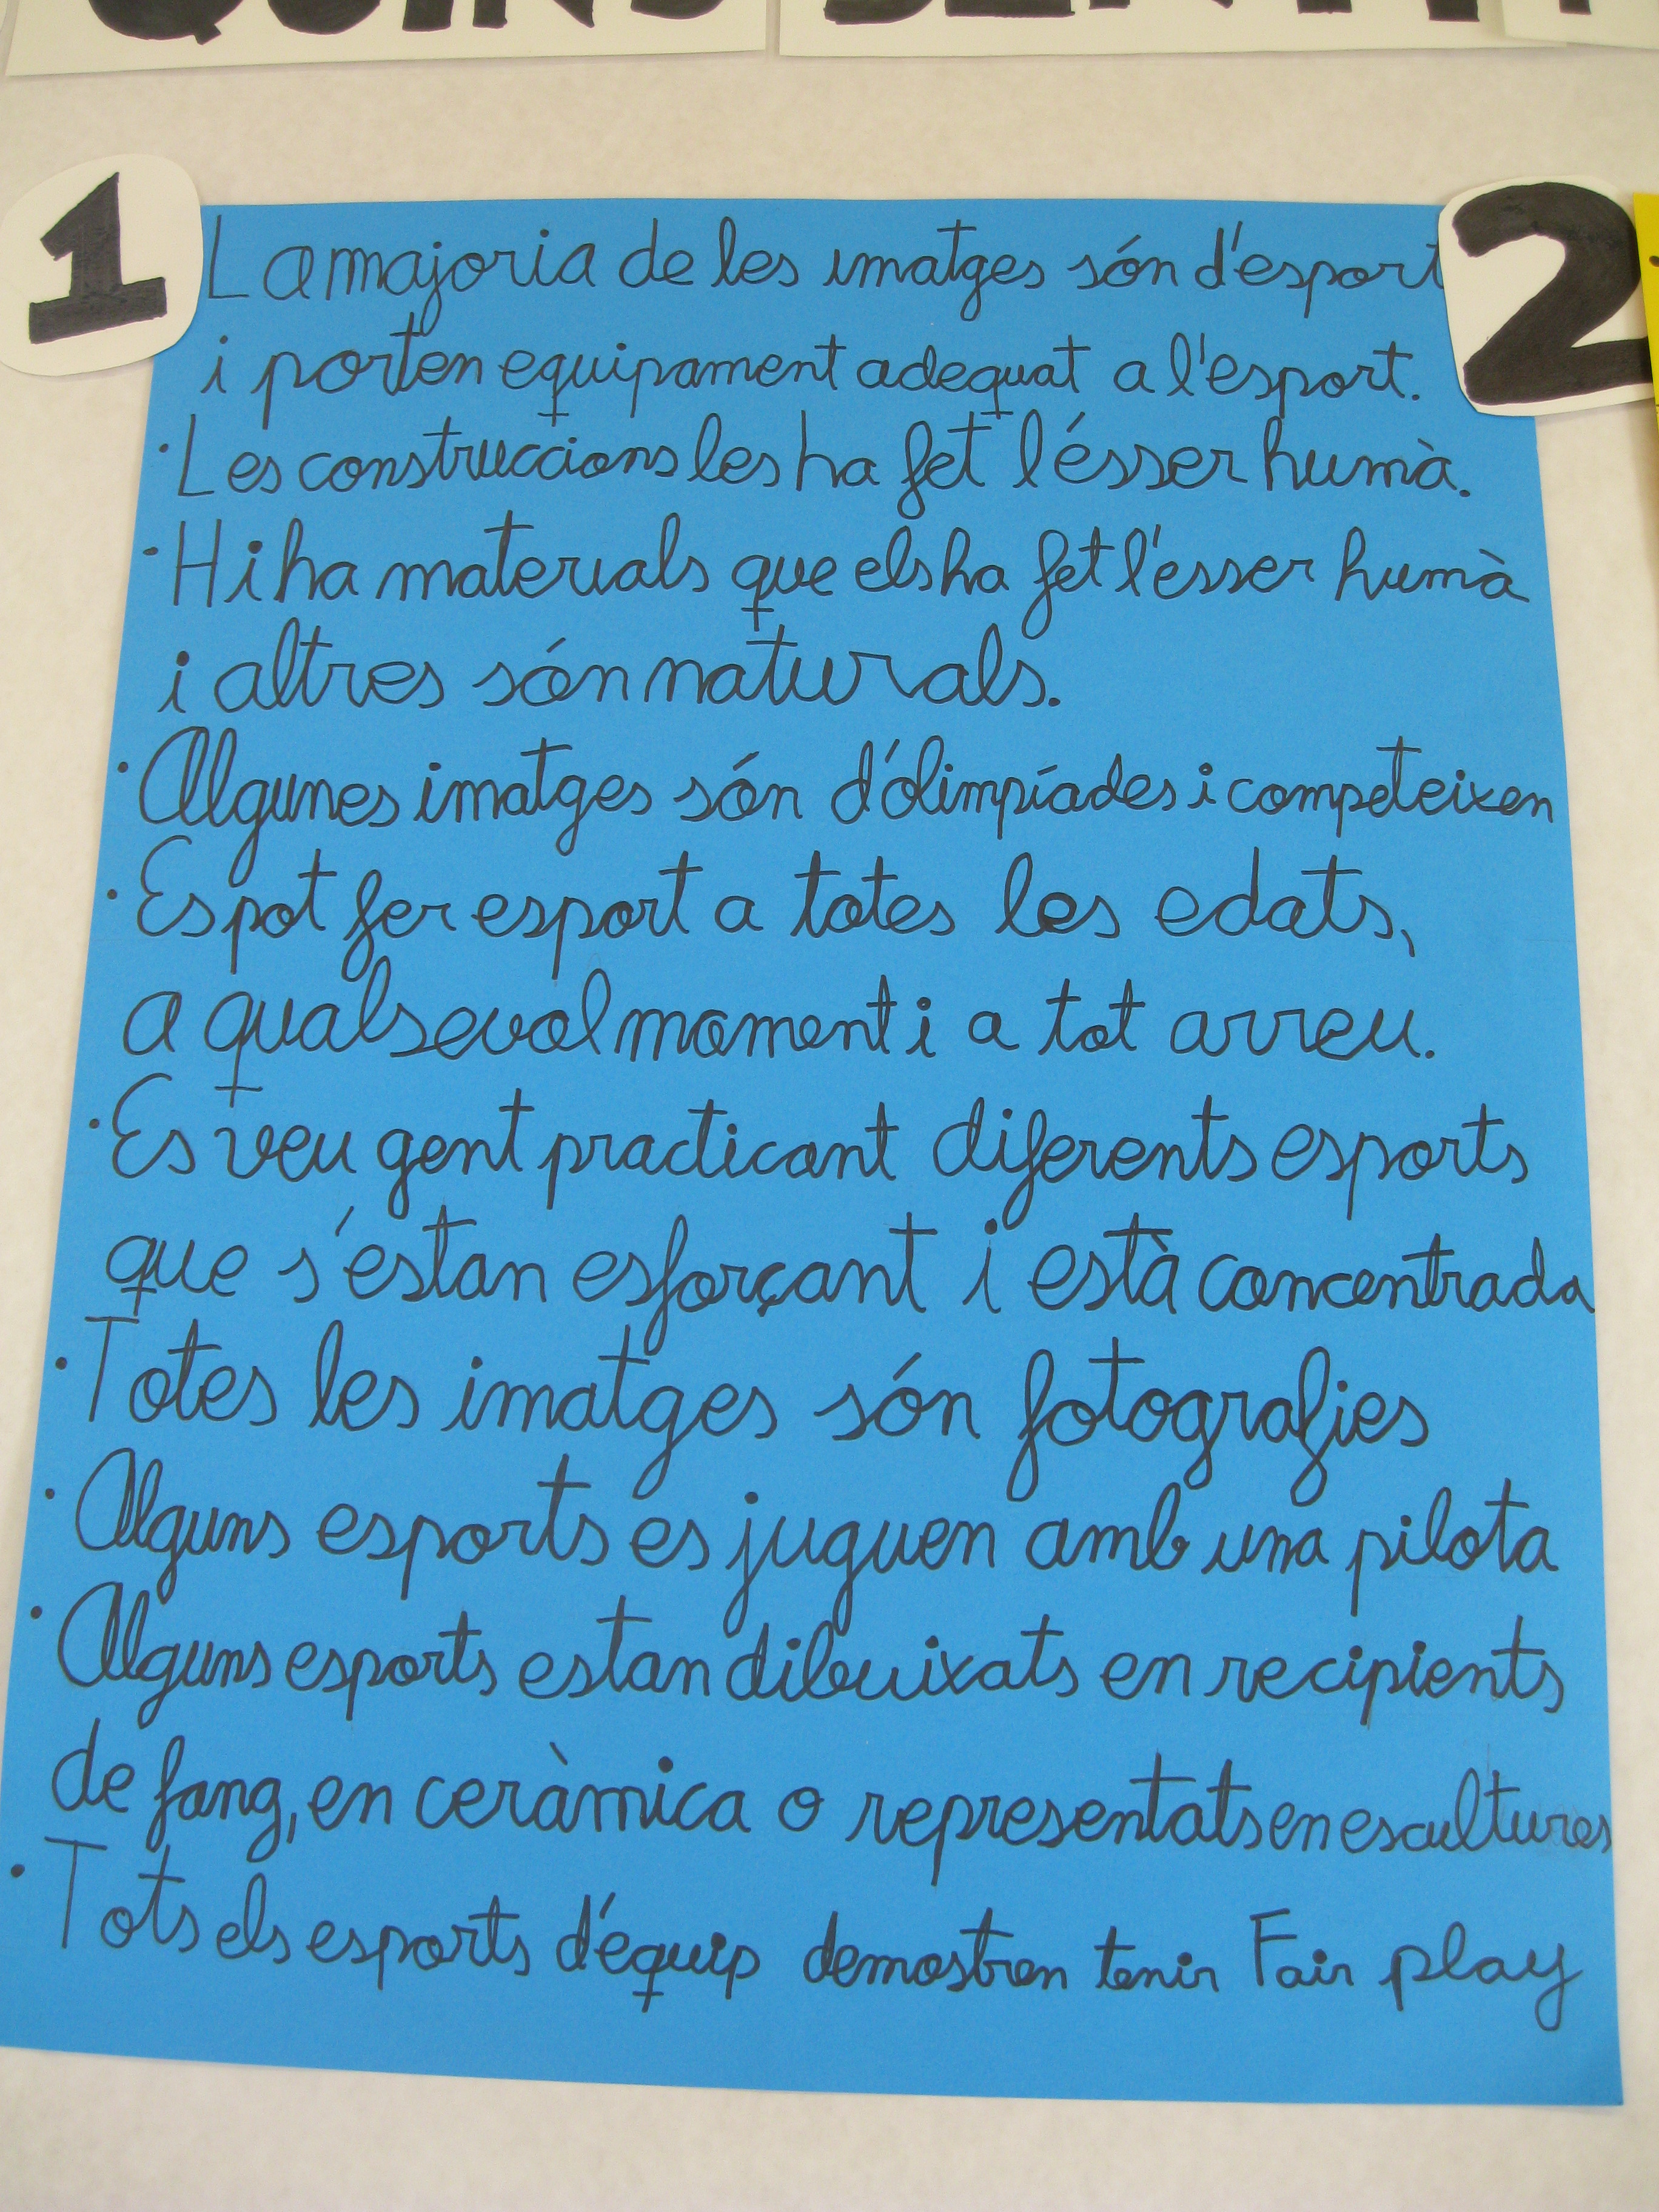 QUINS SENTI
1
2
La majoria de les imatges són d'esport
i porten equipament adequat a l'esport.
·Les construccions les ha fet l'ésser humà.
·Hi ha materials que els ha fet l'ésser humà
i altres són naturals.
·Algunes imatges són d'olimpíades i competeixen
·Es pot fer esport a totes les edats,
a qualsevol moment i a tot arreu.
·Es veu gent practicant diferents esports
que s'estan esforçant i està concentrada
·Totes les imatges són fotografies
·Alguns esports es juguen amb una pilota
·Alguns esports estan dibuixats en recipients
de fang, en ceràmica o representats en escultures
·Tots els esports d'equip demostren tenir Fair play